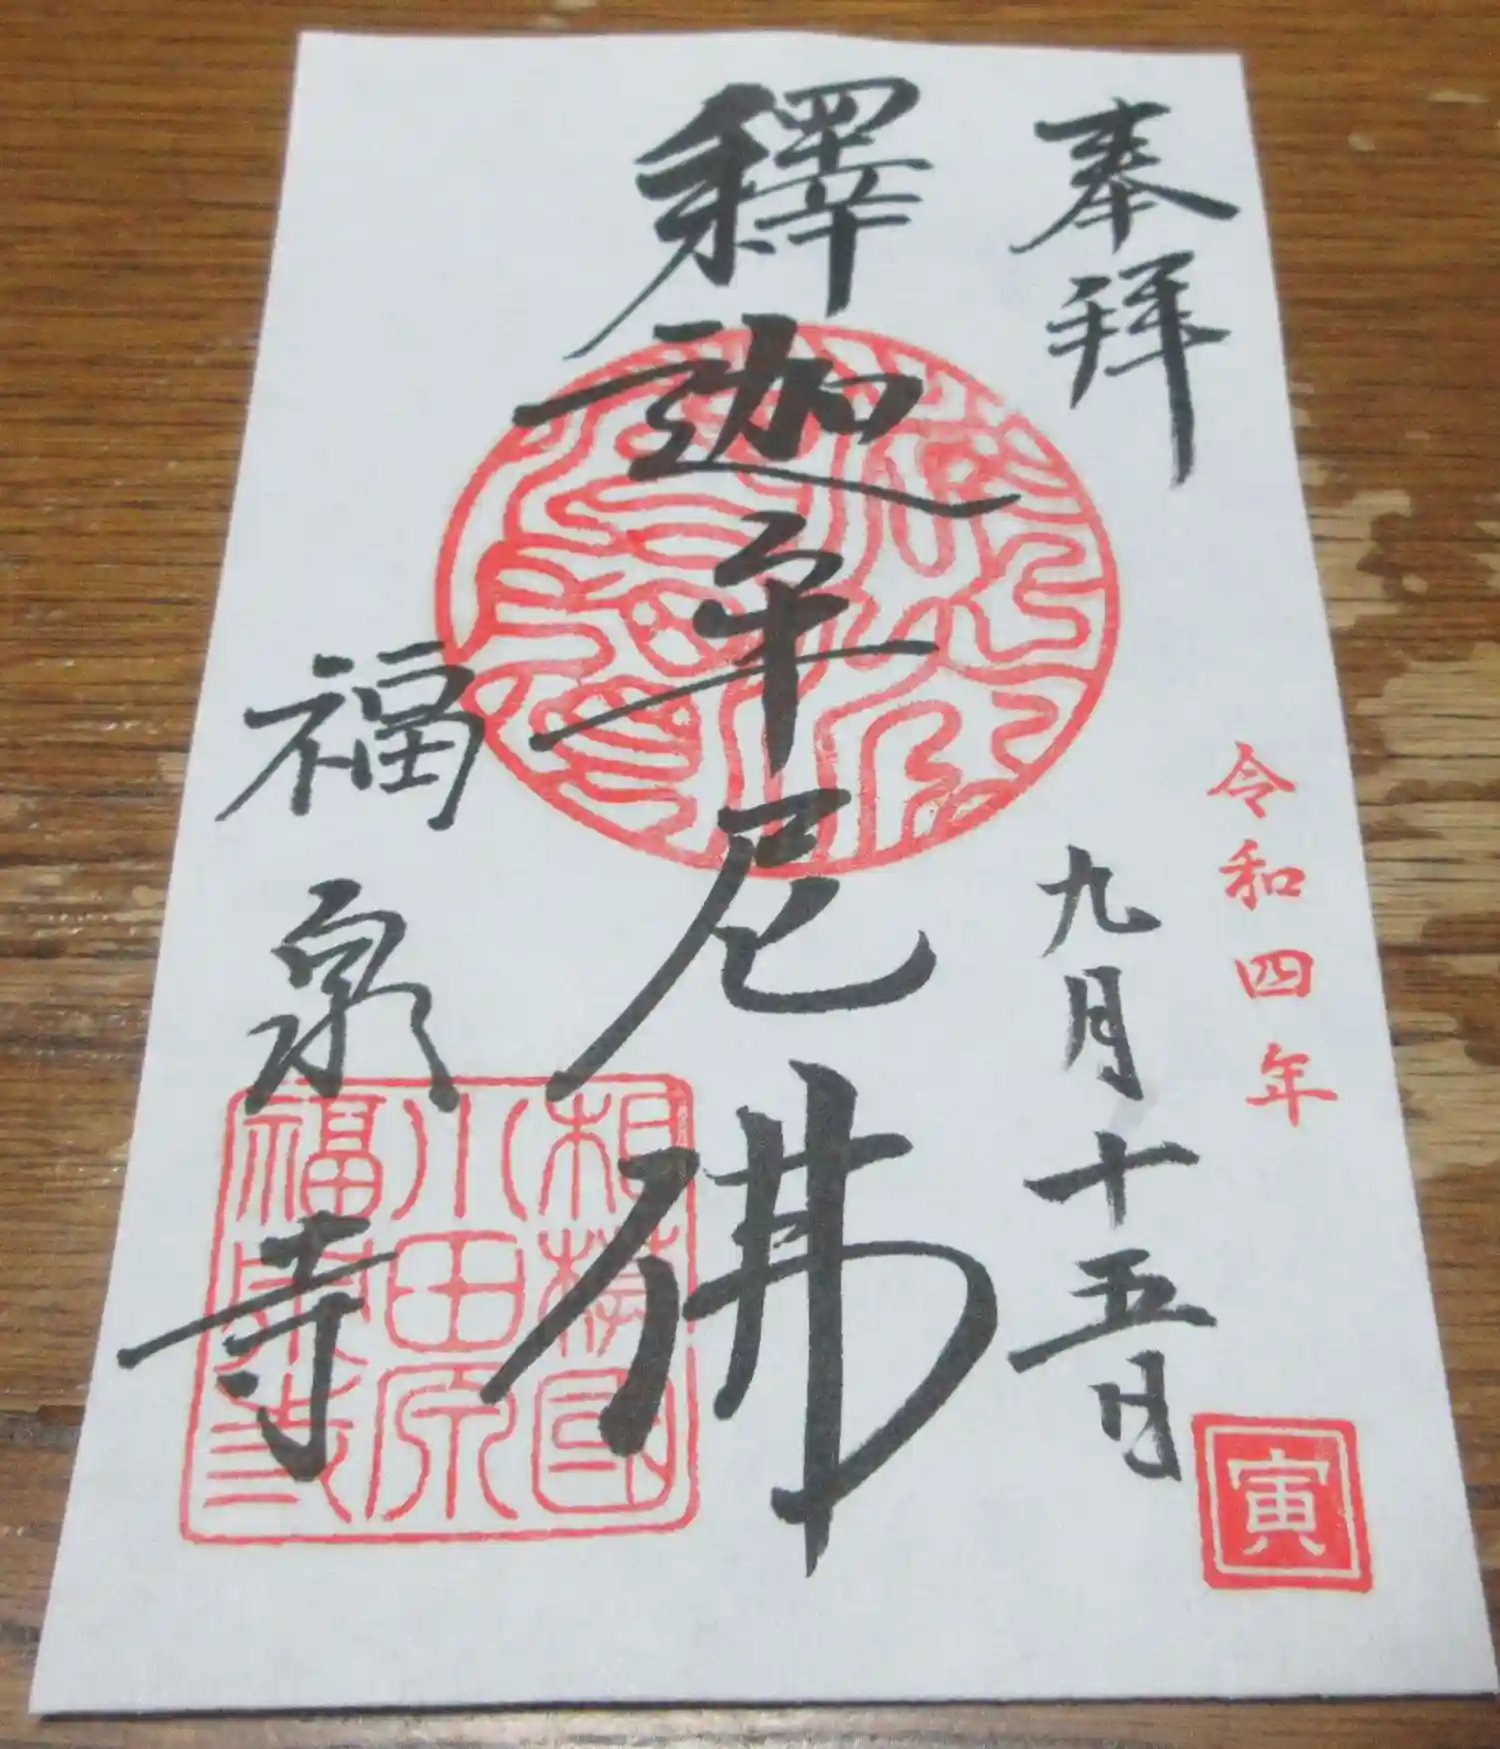 奉拜
令和四年
九月十五日
釋迦牟尼佛
福泉寺
相模國
小田原
福泉寺
寅